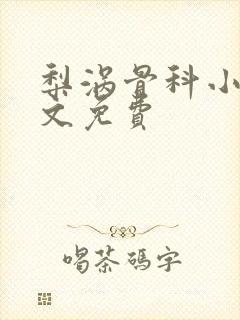 梨涡骨科小
文免費
喝茶碼字